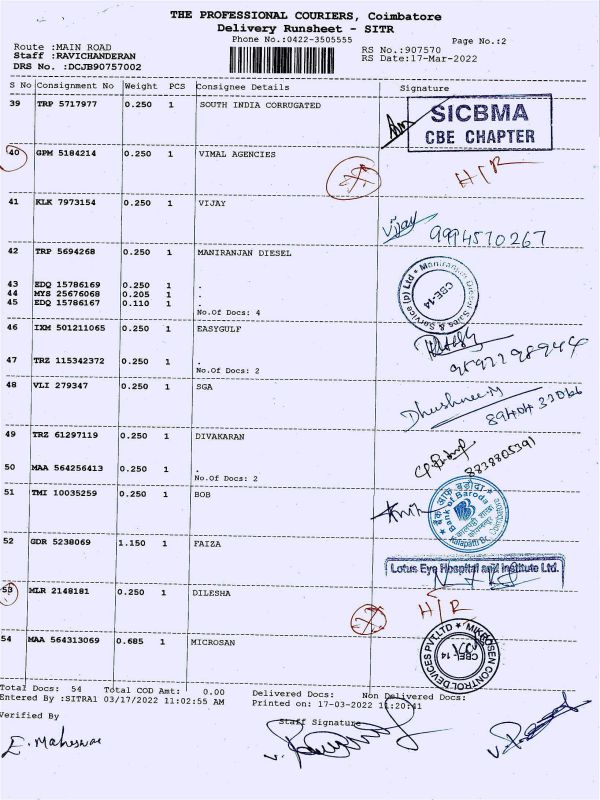 THE PROFESSIONAL COURIERS, Coimbatore
Delivery Runsheet - SITR
Phone No.:0422-3505555
Page No.:2
Route :MAIN ROAD
Staff :RAVICHANDERAN
DRS No. :DCJB90757002
RS No.:907570
RS Date:17-Mar-2022
S No Consignment No Weight PCS Consignee Details Signature
39 TRP 5717977 0.250 1 SOUTH INDIA CORRUGATED
SICBMA
CBE CHAPTER
40 GPM 5184214 0.250 1 VIMAL AGENCIES
H/R
41 KLK 7973154 0.250 1 VIJAY
Vijay 9994570267
42 TRP 5694268 0.250 1 MANIRANJAN DIESEL
Maniranjan Diesel Sales & Service (p) Ltd
CBE-14
43 EDQ 15786169 0.250 1 .
44 MYS 25676068 0.205 1 .
45 EDQ 15786167 0.110 1 .
No.Of Docs: 4
46 IXM 501211065 0.250 1 EASYGULF
47 TRZ 115342372 0.250 1 .
No.Of Docs: 2
48 VLI 279347 0.250 1 SGA
49 TRZ 61297119 0.250 1 DIVAKARAN
8838805391
50 MAA 564256413 0.250 1 .
No.Of Docs: 2
51 TMI 10035259 0.250 1 BOB
बैंक ऑफ़ बड़ौदा
Bank of Baroda
Kalapatti Br.
52 GDR 5238069 1.150 1 FAIZA
Lotus Eye Hospital and Institute Ltd.
53 MLR 2148181 0.250 1 DILESHA
H/R
54 MAA 564313069 0.685 1 MICROSAN
MIKROSEN CONTROL DEVICES PVT LTD
CBE-14
Total Docs: 54 Total COD Amt: 0.00 Delivered Docs: Non Delivered Docs:
Entered By :SITRA1 03/17/2022 11:02:55 AM Printed on: 17-03-2022 11:20:41
Verified By Staff Signature
E. Maheswar